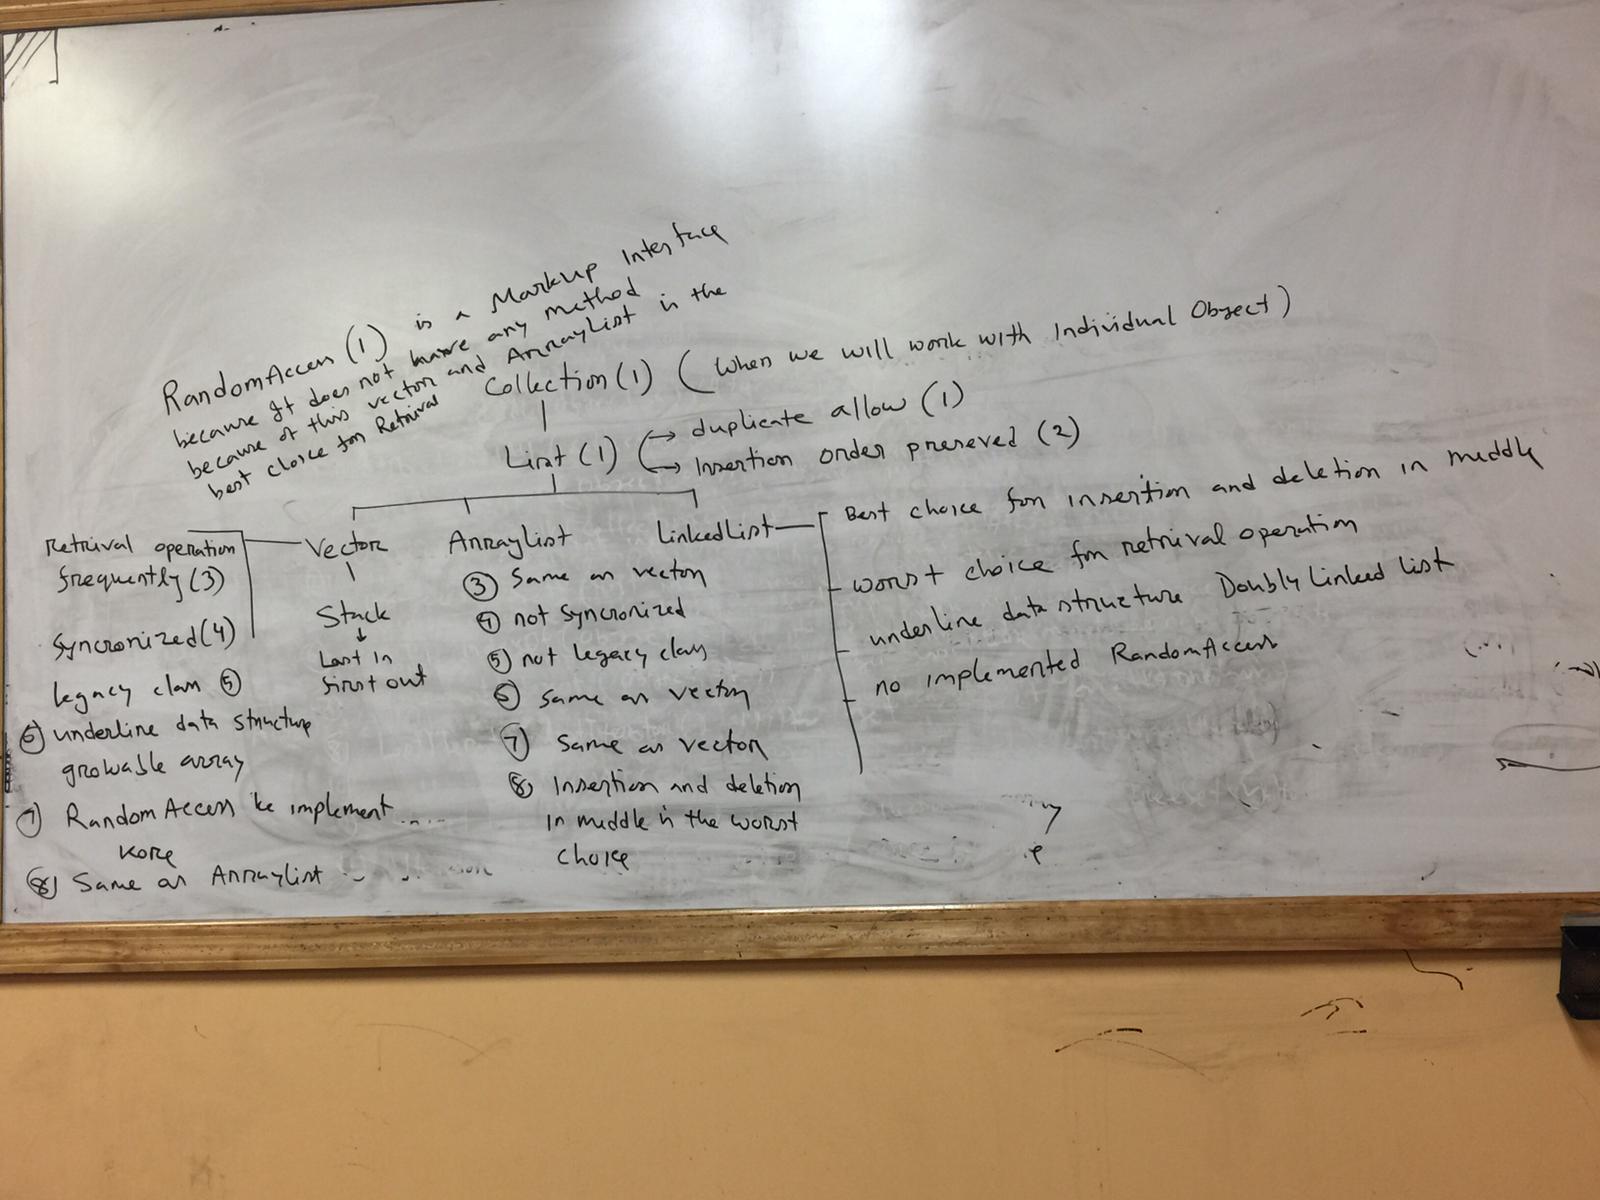 RandomAccess (I) is a Markup Interface
because It does not have any method
because of this vector and ArrayList is the
best choice for Retrival
Collection (I) ( when we will work with Individual Object )
List (I) → duplicate allow (1)
→ Insertion order preseved (2)
Vector
ArrayList
LinkedList
Retrival operation
frequently (3)
Syncronized (4)
legacy class (5)
(6) underline data structure
growable array
(7) RandomAccess ke implement
kore
(8) Same as ArrayList
Stack
↓
Last in
first out
(3) Same as vector
(4) not syncronized
(5) not legacy class
(6) same as vector
(7) Same as vector
(8) Insertion and deletion
in middle is the worst
choice
Best choice for insertion and deletion in middle
worst choice for retrival operation
underline data structure Doubly Linked list
no implemented RandomAccess